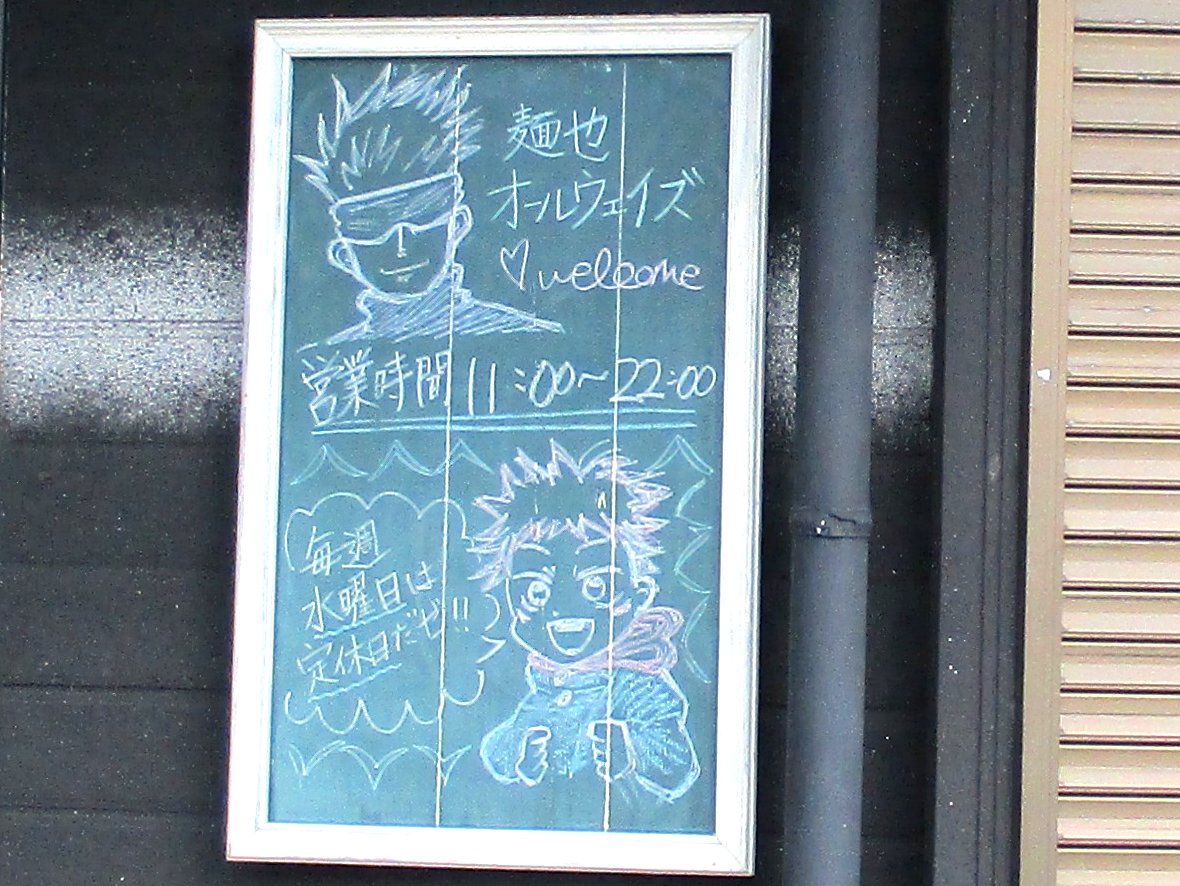 麺也
オールウェイズ
♡welcome
営業時間 11:00~22:00
毎週
水曜日は
定休日だぜ!!